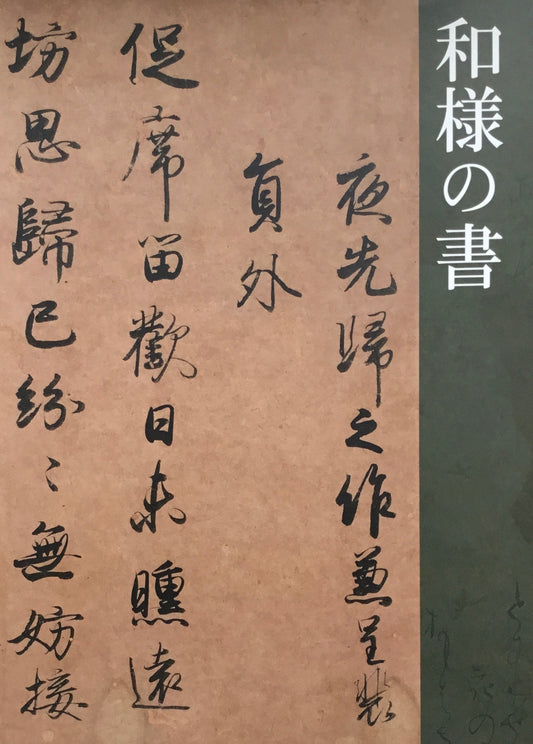 和様の書
夜先歸之作兼呈裴
貟外
促席留歡日未曛遠
坊思歸已紛〻無妨接